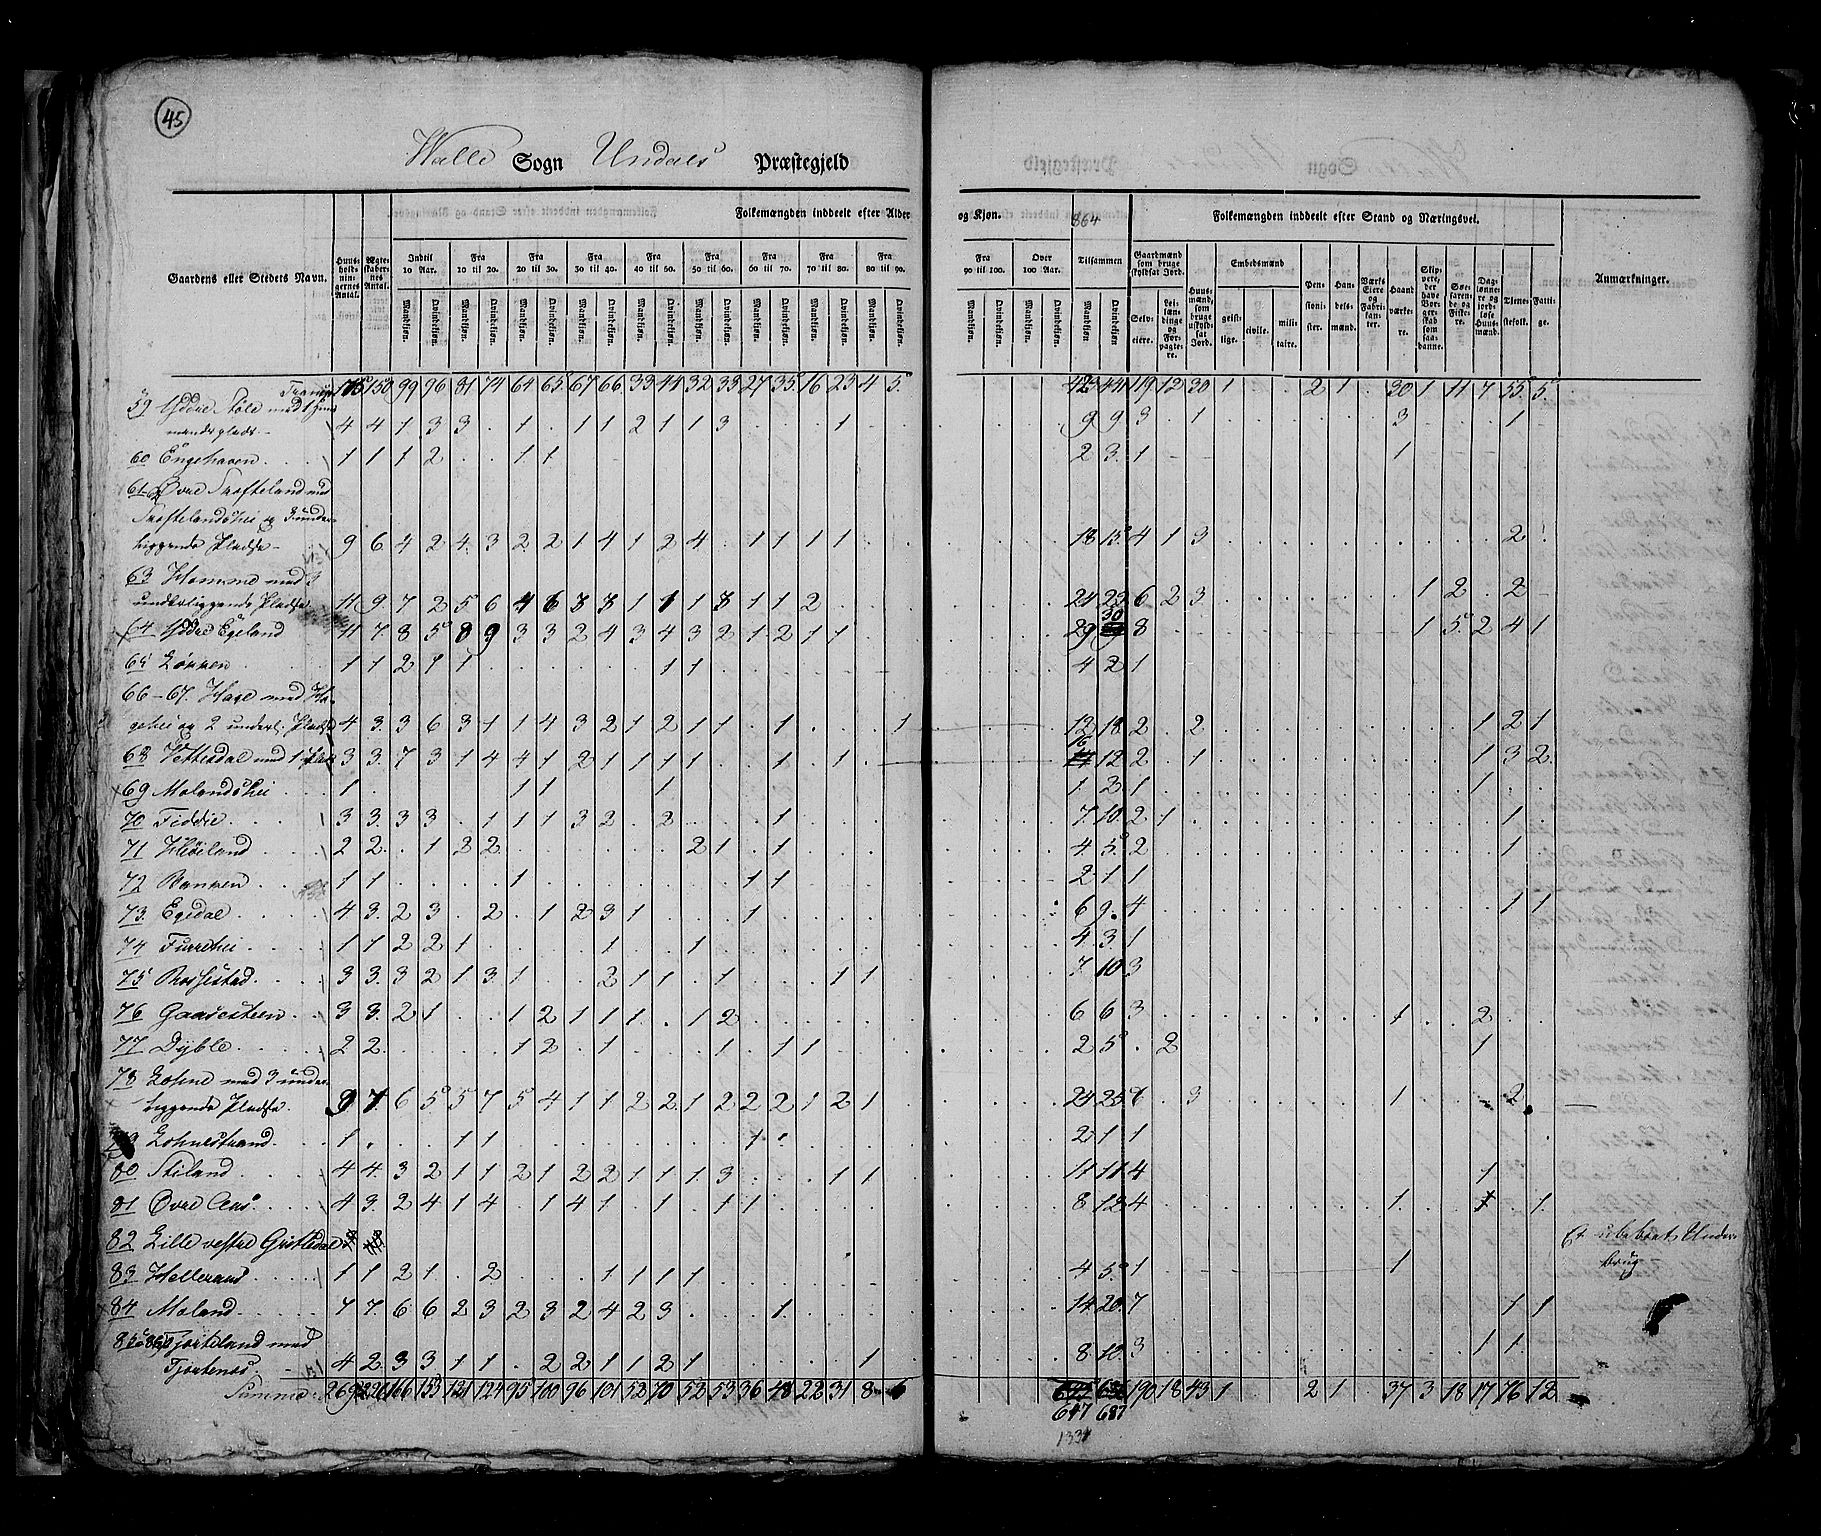 45
Walle Sogn Undals Præstegjeld
Gaardens eller Stedets Navn.
Huusholdningernes Antal.
Ægteskabernes Antal.
Folkemængden inddeelt efter Alder
og Kjøn.
864
Folkemængden inddeelt efter Stand og Næringsvei.
Anmærkninger.
Indtil 10 Aar.
Fra 10 til 20.
Fra 20 til 30.
Fra 30 til 40.
Fra 40 til 50.
Fra 50 til 60.
Fra 60 til 70.
Fra 70 til 80.
Fra 80 til 90.
Fra 90 til 100.
Over 100 Aar.
Tilsammen
Mandkjøn. Qvindekjøn.
Gaardmænd som bruge skyldsat Jord.
Selveiere.
Leilændinge og Forpagtere.
Huusmænd, som bruge uskyldsat Jord.
Embedsmænd
geistlige.
civile.
militaire.
Pensionister.
Handelsmænd.
Værks Eiere og Fabrikanter.
Haandværkere.
Skippere, der have Borgerskab som saadanne.
Søefarende og Fiskere.
Daglønnere og jordløse Huusmænd.
Tjenestefolk.
Fattige.
99 96 81 74 64 65 67 66 33 44 32 33 27 35 16 23 4 5 423 441 119 12 30 1 2 1 30 1 11 7 55 5
59 Ydre Støle med 1 Huus
mandsplads 4 4 1 3 3 . 1 . 1 1 2 1 1 3 . . . 1 9 9 3 . 1 3 1
60 Engehaven 1 1 1 2 . . 1 1 2 3 1 1
61-62 Øvre Trofteland med
Troftelandshei og 3 under-
liggende Pladse 9 6 4 2 4 3 2 2 1 4 1 2 4 . 1 1 1 1 18 15 4 1 3 2
63 Homme med 3
underliggende Pladse 11 9 7 2 5 6 4 6 3 3 1 1 1 3 1 1 2 24 23 6 2 3 1 2 2
64 Ydre Egeland 11 7 8 5 8 9 3 3 2 4 3 4 3 2 1 2 1 1 29 30 8 1 5 2 4 1
65 Løkken 1 1 2 1 1 1 1 4 2 1
66-67. Hage med Ha-
gehei og 2 underl. Pladse 4 3 3 6 3 1 1 4 3 2 1 2 1 1 . 1 . . . 1 2 . 2 1 2 1
68 Vettisdal med 1 Plads 3 3 7 3 1 4 4 1 2 1 1 1 1 . . 1 . 1 16 12 2 . 1 1 3 2
69 Molandshei 1 1 1 1 1 1 1
70 Fiddie 3 3 3 3 . 1 1 1 3 2 . 2 . . . 1 7 10 2 1 1
71 Høiland 2 2 . 1 2 2 2 1 . 1 4 5 2 1
72 Banken 1 1 1 1 1 2 1 1
73. Egedal 4 3 2 3 . 2 . 1 2 3 1 1 6 9 4 1 1
74 Furrehei 1 1 2 2 1 1 1 4 3 1
75 Rossestad 3 3 3 2 1 3 1 . . 2 1 1 . 1 . . . 1 1 7 10 3
76 Gaasesteen 3 3 2 1 . . 1 2 1 1 1 . 1 2 6 6 3 1 2
77 Dyble 2 2 1 2 . 1 1 . 1 1 2 5 . 2 1
78 Lohne med 3 under-
liggende Pladse. 9 7 6 5 5 7 5 4 1 1 2 2 1 2 2 2 1 2 1 24 25 . 3 1 2
79 Lohnestrand 1 . 1 1 1 2 1 1
80 Stiland 4 4 3 2 1 1 2 1 2 2 1 1 1 3 . . . 1 1 11 11 4 1
81 Øvre Aas 4 3 2 4 1 4 . 1 4 1 . 1 . 1 1 8 12 4 1 1 1
82 Lille vestre Gristedal Et ubeboet Under-
brug
83 Helleraas 1 1 2 1 . 2 1 1 1 1 4 5 1 1
84 Moland 7 7 6 6 2 3 2 3 2 4 2 3 . . . 1 14 20 7 1 1
85 86 Fjorteland med
Tjortenes 4 2 3 3 1 1 . 2 2 1 1 2 1 1 8 10 3 1 1
Summa 269 166 153 121 124 95 100 96 101 52 70 52 53 36 48 22 31 8 6 190 18 43 1 2 1 37 3 18 17 76 12
647 687
1334